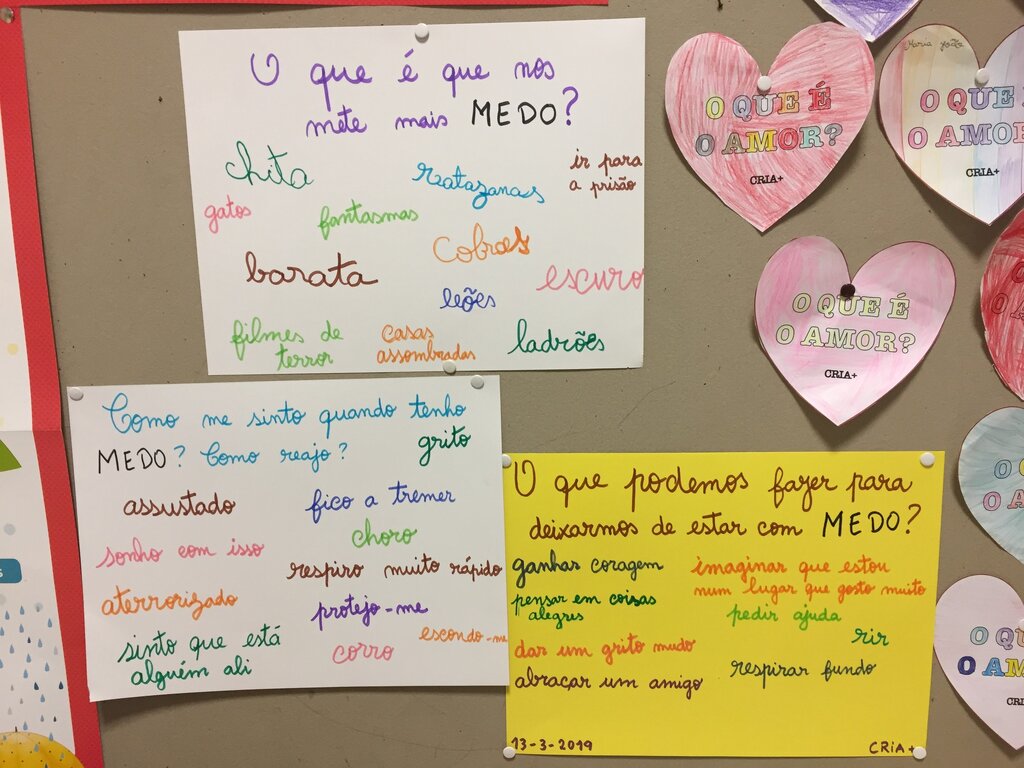 O que é que nos
mete mais MEDO?
chita
ratazanas
ir para
a prisão
gatos
fantasmas
cobras
barata
leões
escuro
filmes de
terror
casas
assombradas
ladrões
Como me sinto quando tenho
MEDO? Como reajo?
grito
assustado
fico a tremer
choro
sonho com isso
respiro muito rápido
aterrorizado
protejo-me
escondo-me
sinto que está
alguém ali
corro
O que podemos fazer para
deixarmos de estar com MEDO?
ganhar coragem
imaginar que estou
num lugar que gosto muito
pensar em coisas
alegres
pedir ajuda
rir
dar um grito mudo
respirar fundo
abraçar um amigo
13-3-2019
CRIA+
O QUE É
O AMOR?
CRIA+
Maria João
O QUE
O AMOR
CRIA+
O QUE É
O AMOR?
CRIA+
O QU
O AM
CRI